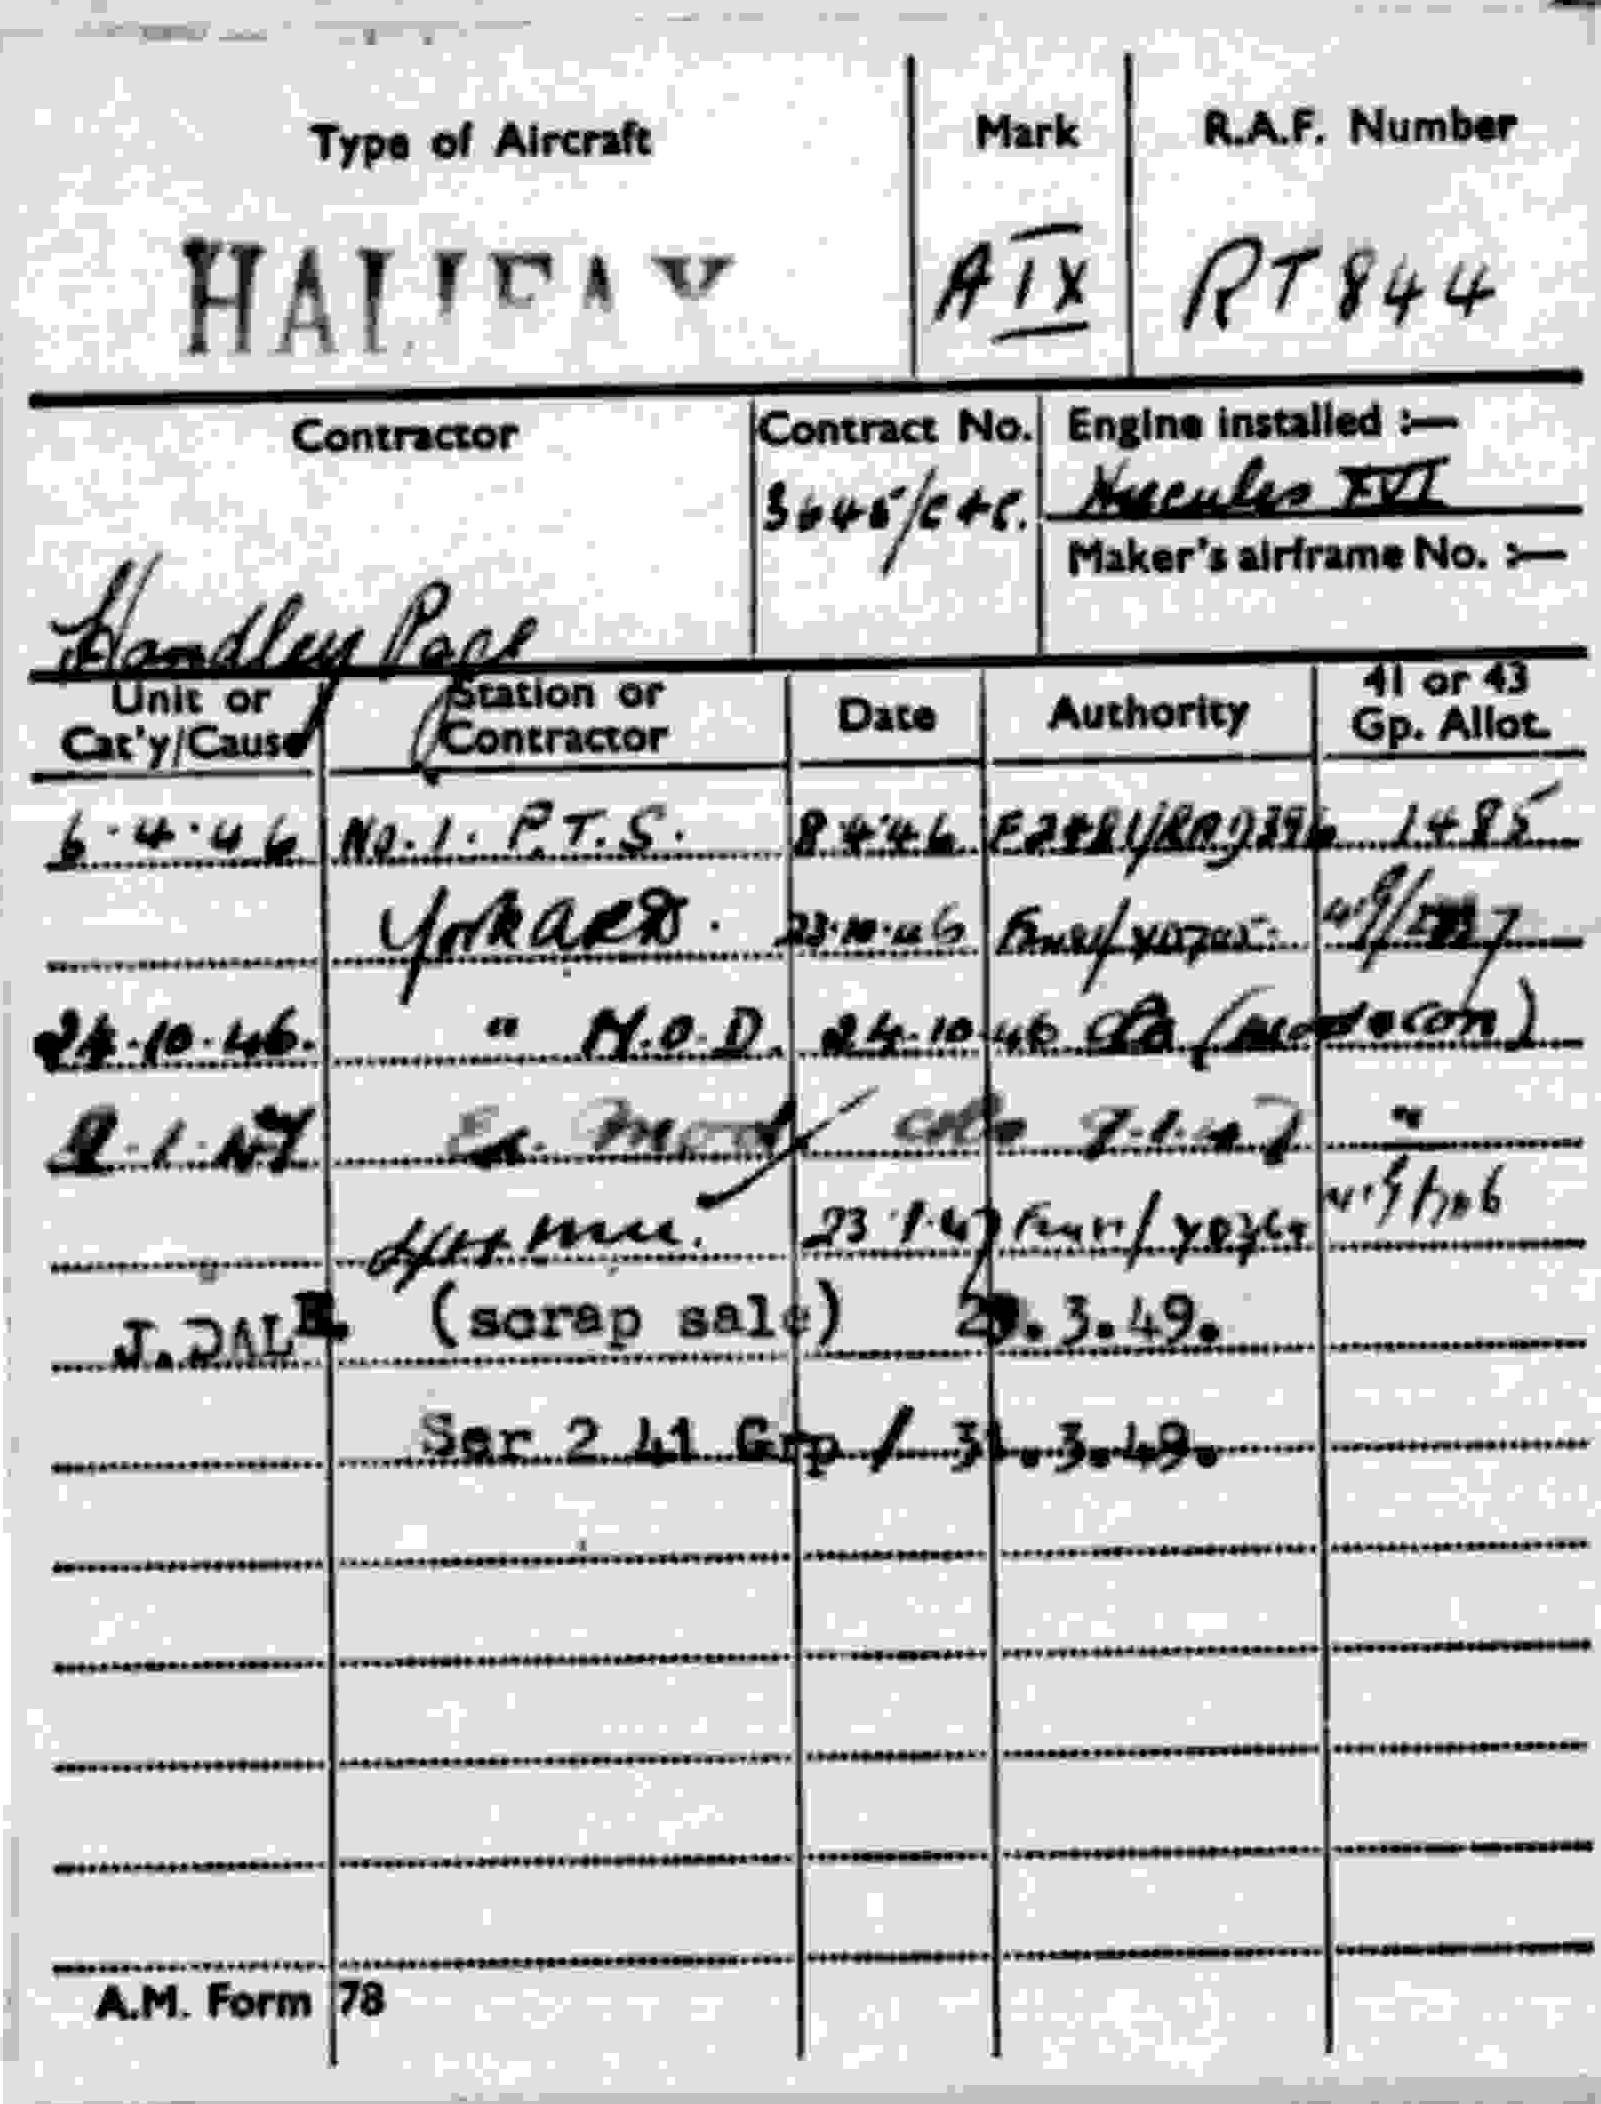 Type of Aircraft Mark R.A.F. Number
HALIFAX A IX RT 844
Contractor Contract No. Engine installed :—
3645/C4C. Hercules XVI
Maker's airframe No. :—
Handley Page
Unit or Cat'y/Cause Station or Contractor Date Authority 41 or 43 Gp. Allot.
6.4.46 No.1. P.T.S. 8.4.46 1485
York ARD. 23.10.46
24.10.46. " M.O.D. 24.10.46
Ex. Mod "
23.1.47
J.DALE. (scrap sale) .3.49.
Ser 2 41 Grp / 31.3.49.
A.M. Form 78